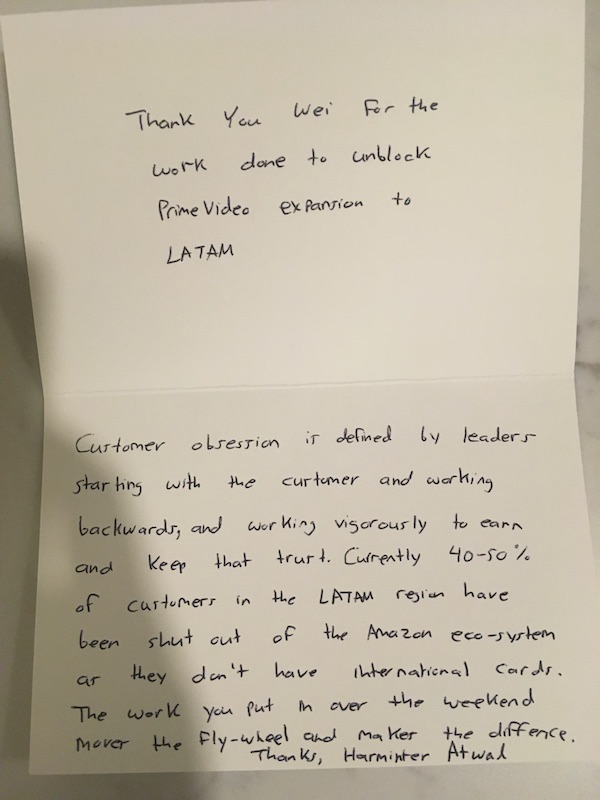 Thank You Wei For the
work done to unblock
Prime Video expansion to
LATAM
Customer obsession is defined by leaders
starting with the customer and working
backwards, and working vigorously to earn
and keep that trust. Currently 40-50%
of customers in the LATAM region have
been shut out of the Amazon eco-system
as they don't have international cards.
The work you put in over the weekend
moves the fly-wheel and makes the diffence.
Thanks, Harminter Atwal